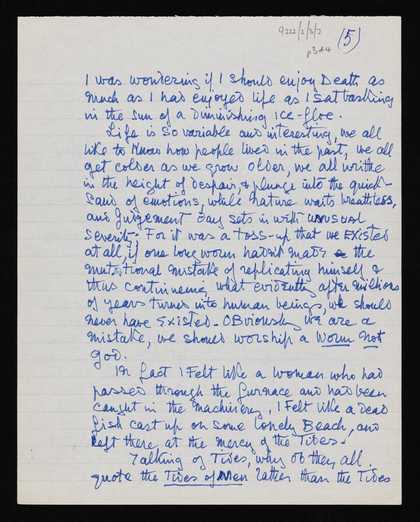 9222/2/3/2
(5)
p344
I was wondering if I should enjoy Death as
much as I had enjoyed life as I sat basking
in the sun of a Diminishing ice-floe.
Life is so variable and interesting, we all
like to know how people lived in the past, we all
get colder as we grow older, we all writhe
in the height of despair, & plunge into the quick-
sand of emotions, while Nature waits breathless,
and Judgement day sets in with unusual
severity. For it was a toss-up that we Existed
at all, if one long worm hadnt made the
mutational mistake of replicating himself &
thus continueing what evidently after millions
of years turned into human beings, we should
never have Existed - OBviously we are a
mistake, we should worship a Worm not
God.
In fact I Felt like a woman who had
passed through the furnace and had been
caught in the machinery, I Felt like a Dead
fish cast up on some lonely Beach, and
left there, at the mercy of the Tides.
Talking of Tides, why do they all
quote the Tides of Men rather than the Tides